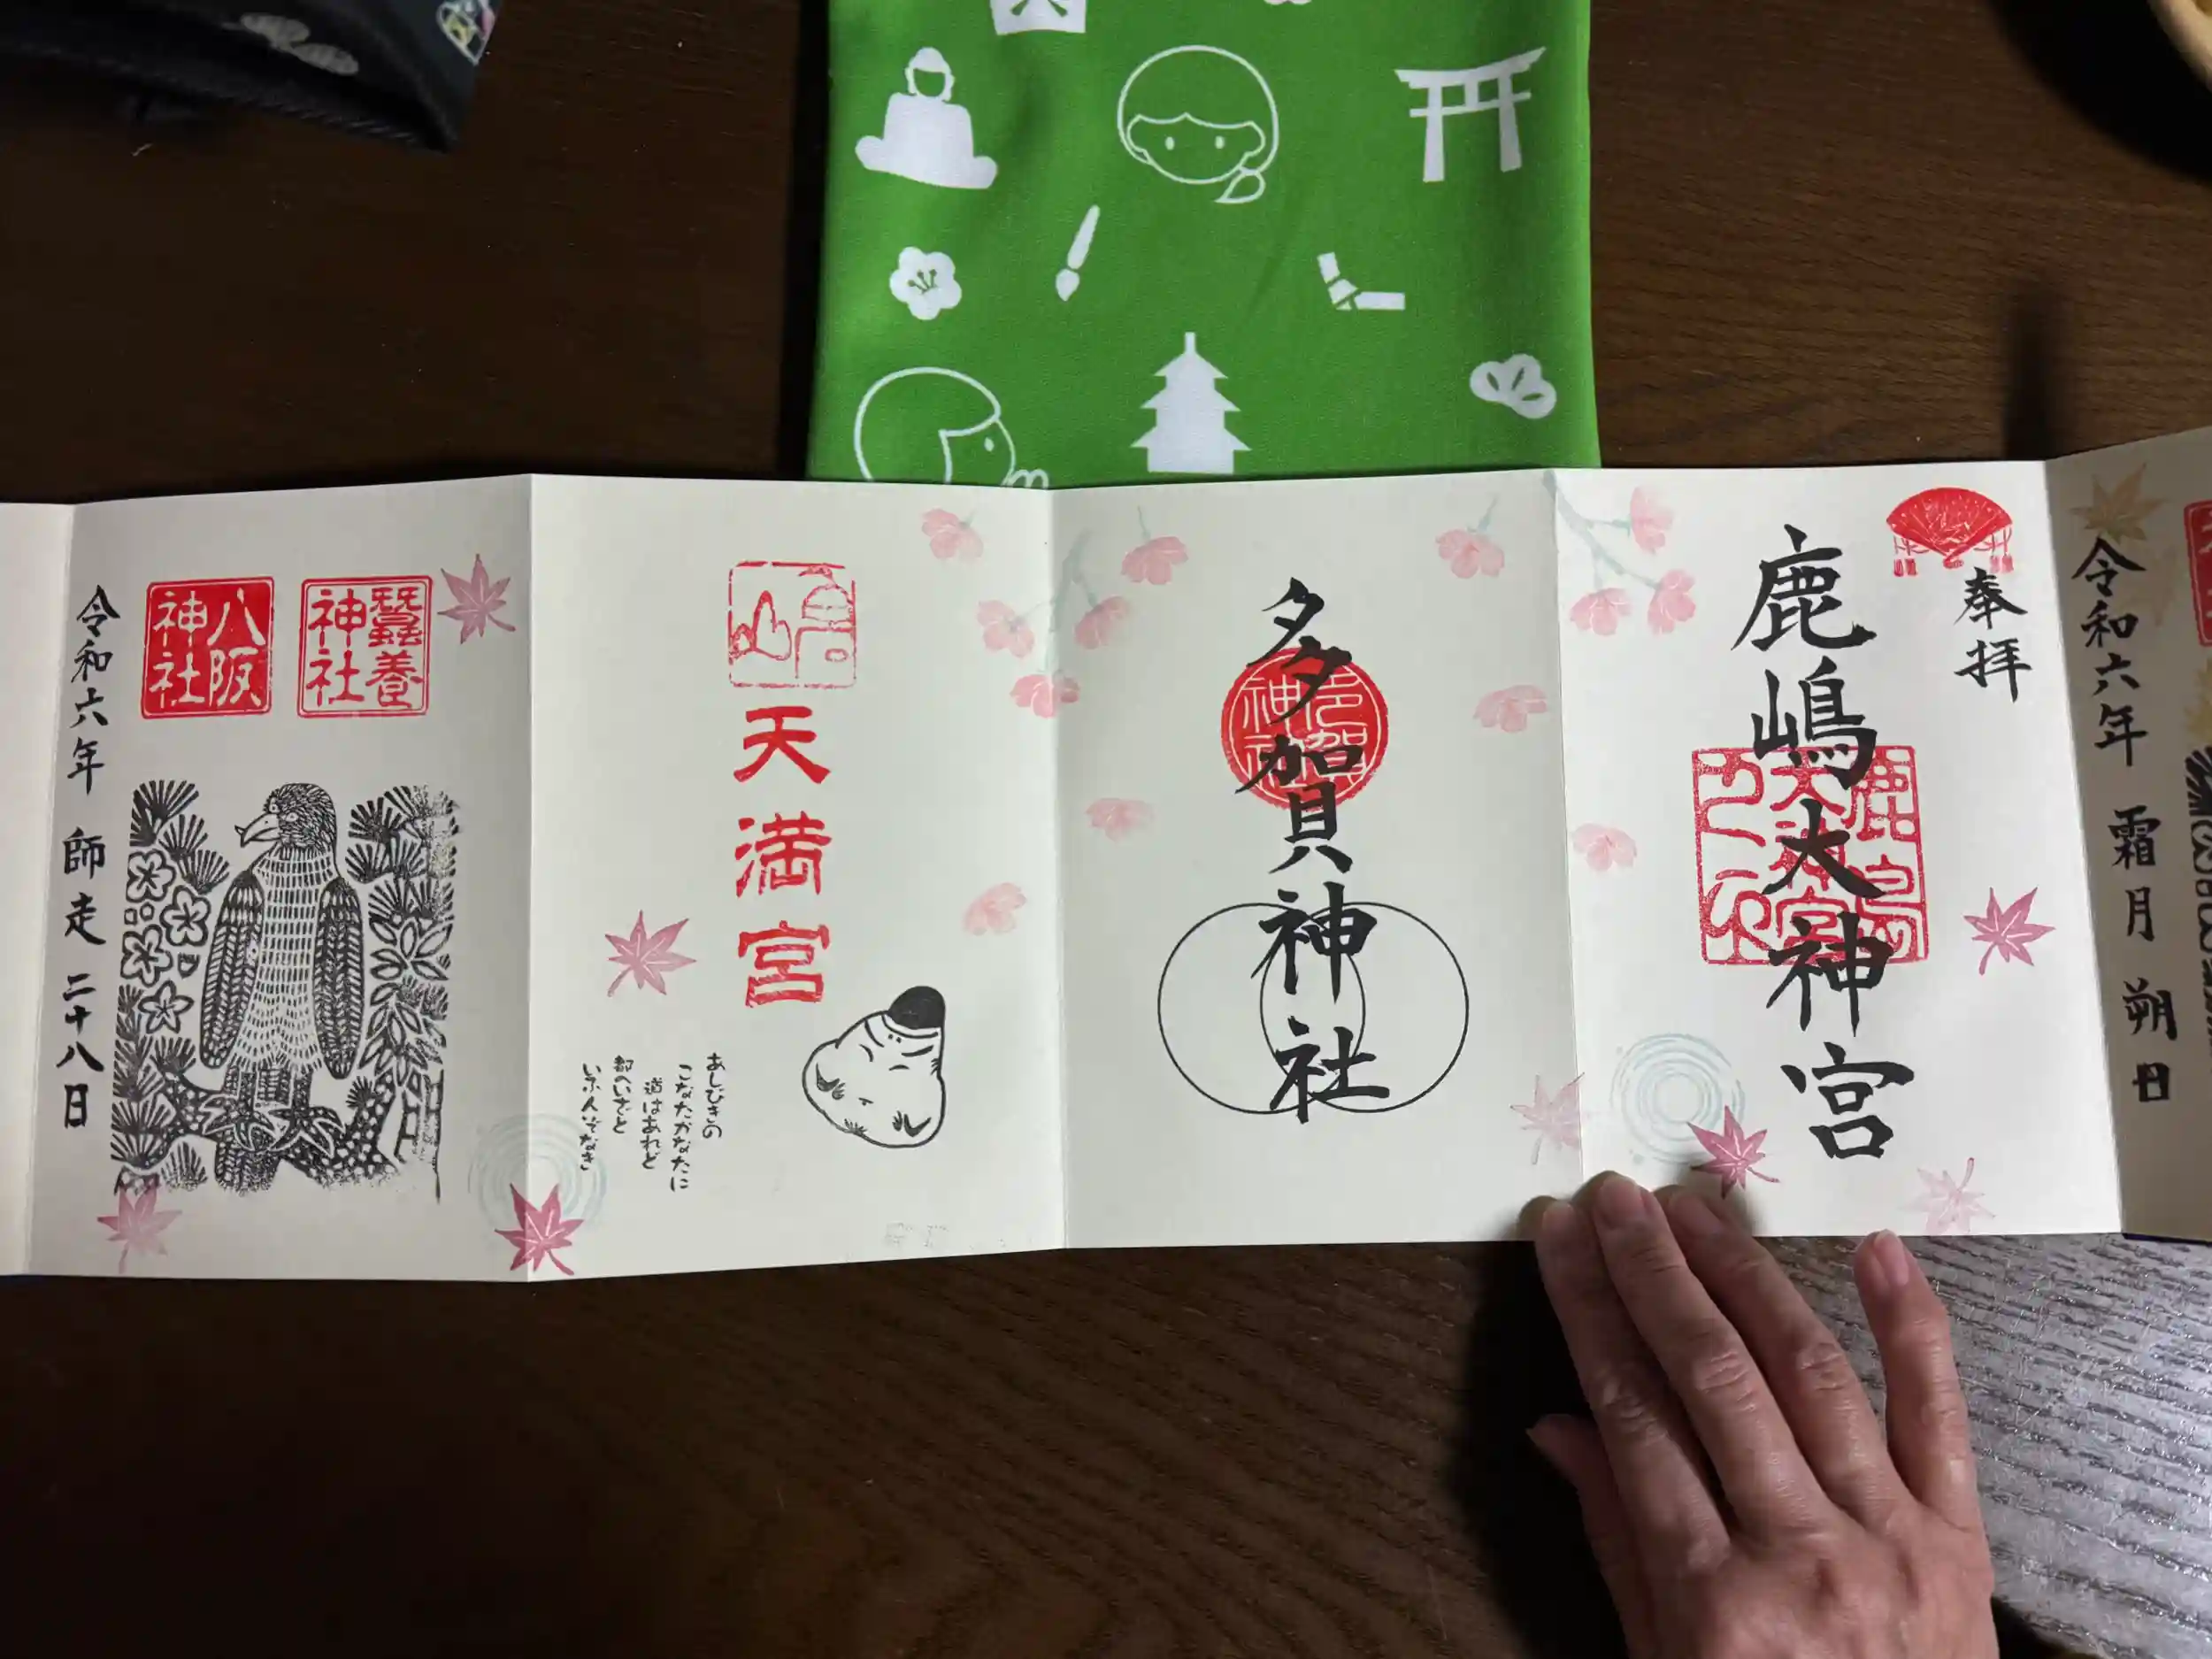 令和六年　霜月　朔日
奉拝
鹿嶋大神宮
多賀神社
天満宮
あしびきの
こなたかなたに
道はあれど
都へいざと
いふ人ぞなき
蠶養神社
八阪神社
令和六年　師走　二十八日